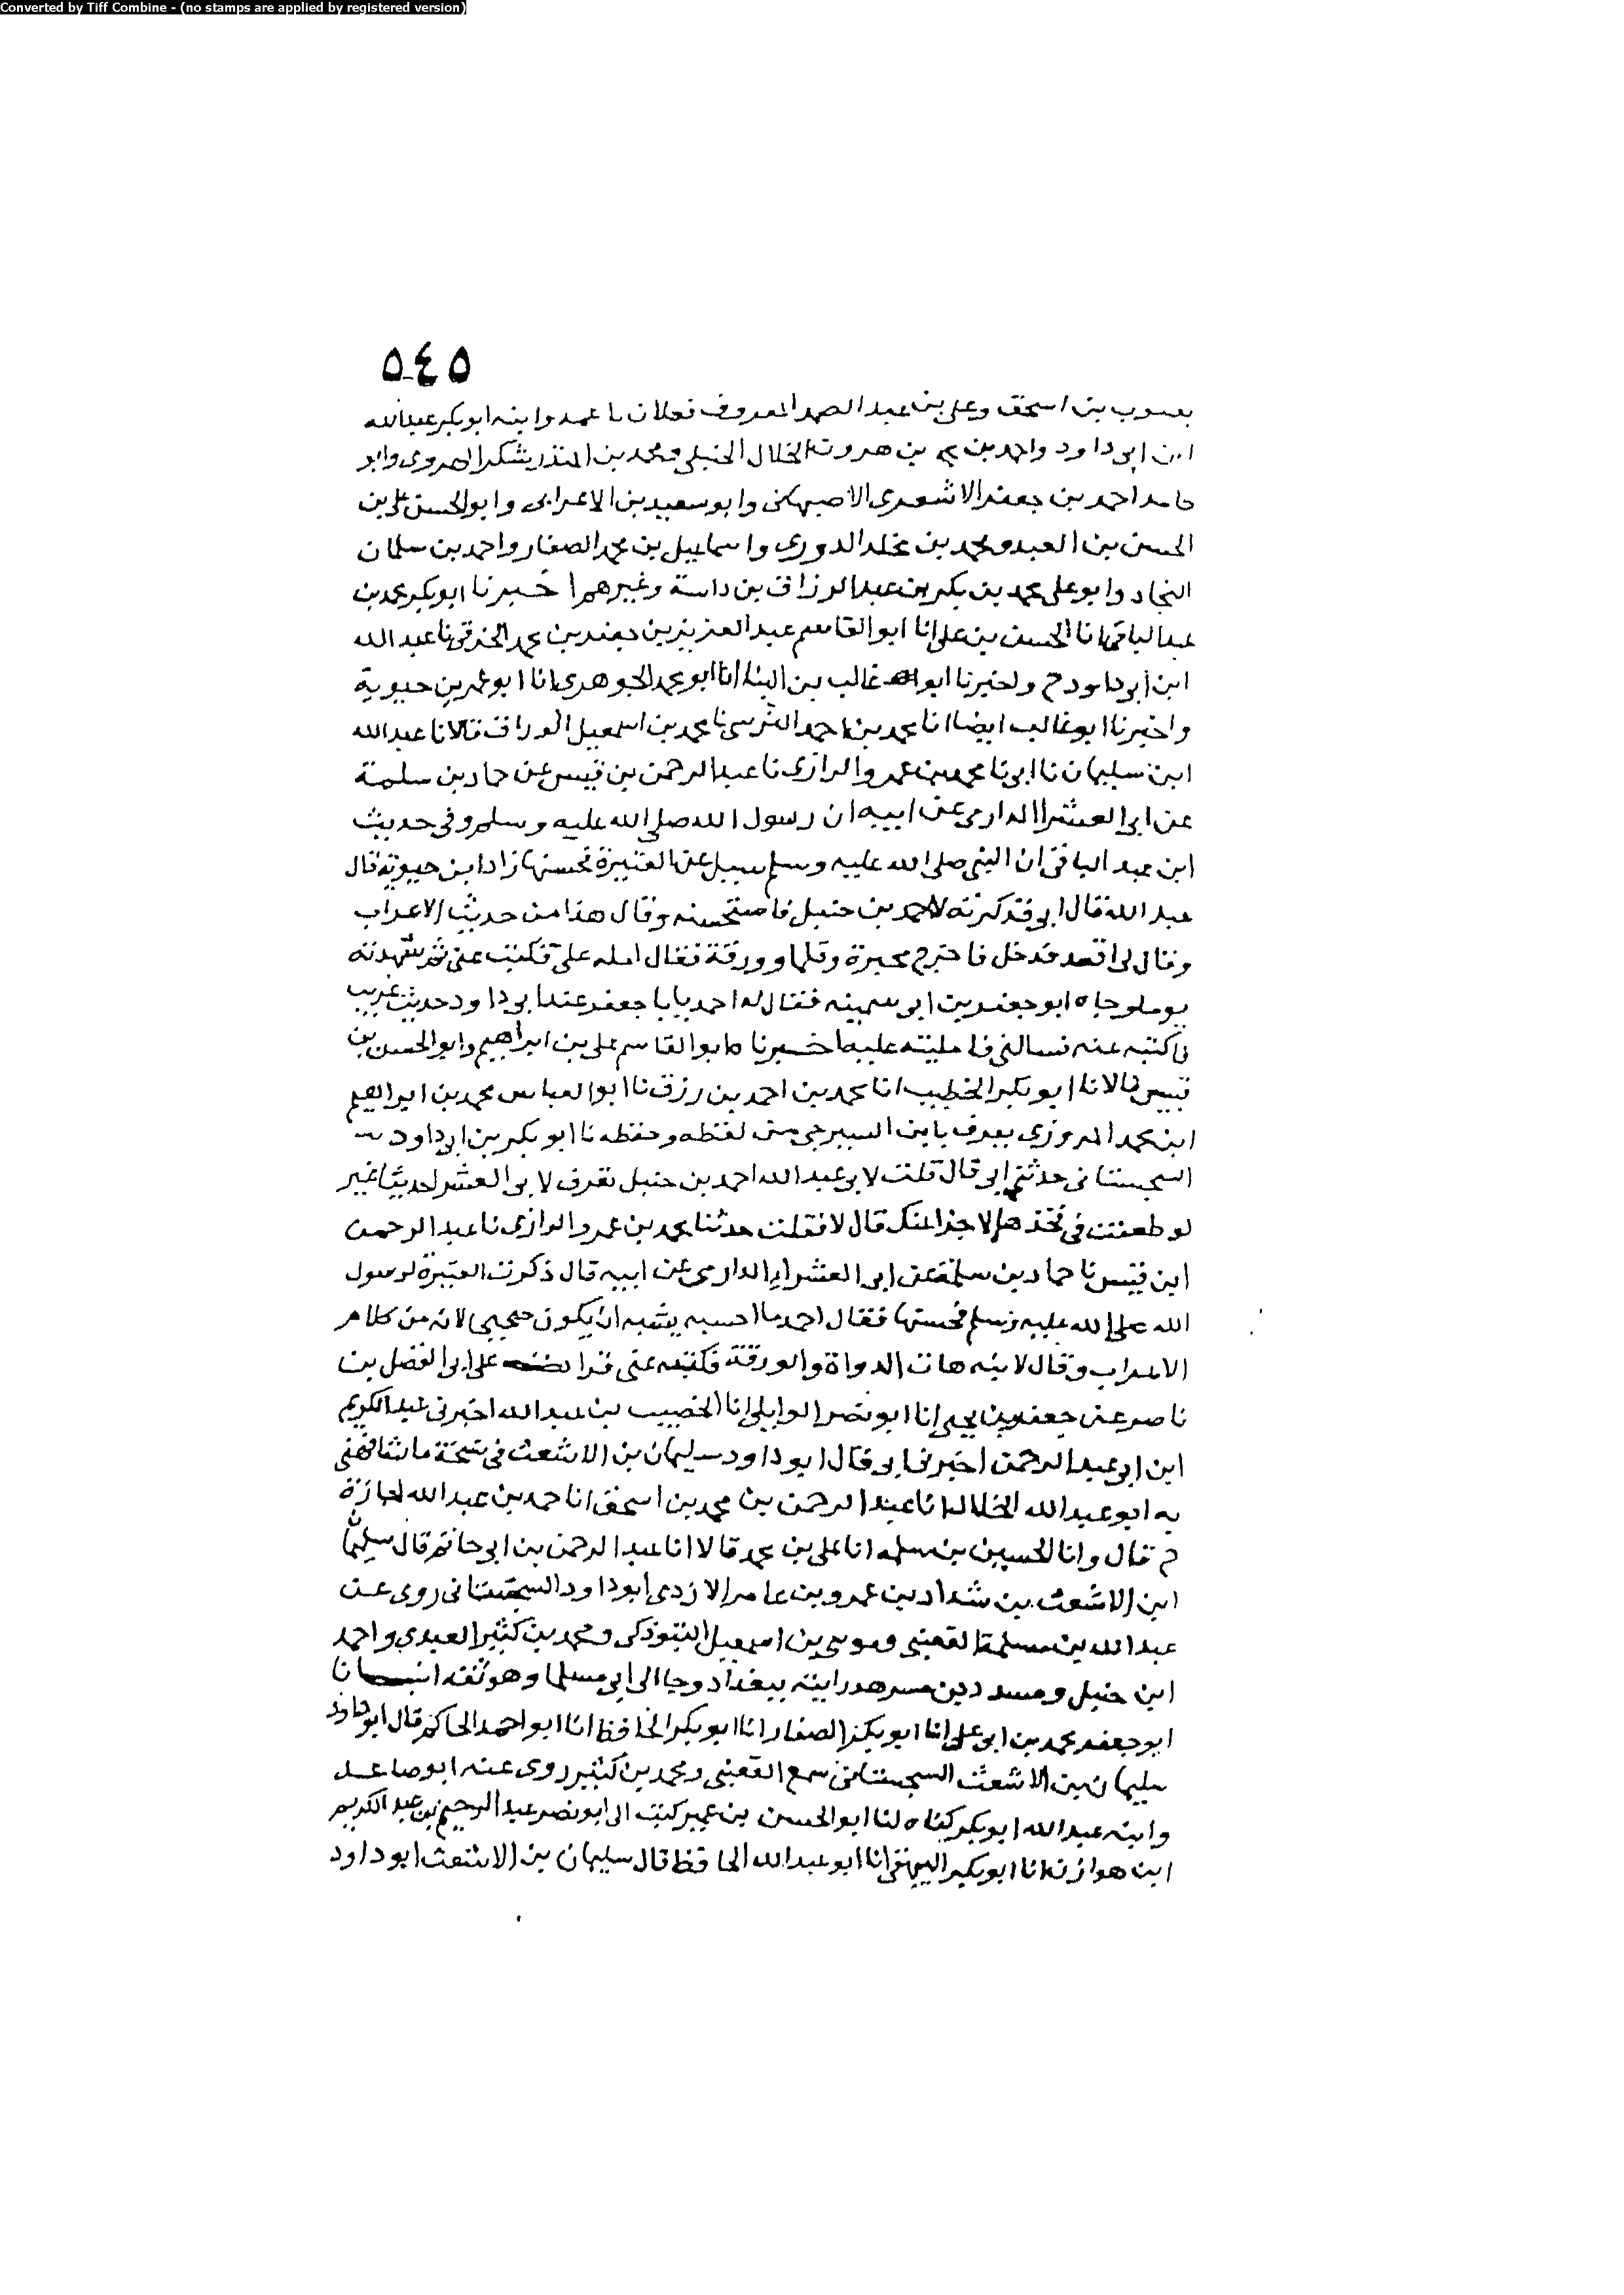 Converted by Tiff Combine - (no stamps are applied by registered version)
٥٤٥
يعقوب بن اسحق وعلي بن عبد الصمد المعروف بعلان ما عمه وابنه ابو بكر عبد الله
ابن ابي داود واحمد بن محمد بن هرون الخلال الحنبلي ومحمد بن المنذر شكر الهروي وابو
حامد احمد بن جعفر الاشعري الاصبهاني وابو سعيد بن الاعرابي وابو الحسن علي بن
الحسن بن العبد ومحمد بن مخلد الدوري واسماعيل بن محمد الصفار واحمد بن سلمان
النجاد وابو علي محمد بن بكر بن عبد الرزاق بن داسة وغيرهم اخبرنا ابو بكر محمد بن
عبد الباقي انا الحسن بن علي انا ابو القاسم عبد العزيز بن جعفر بن محمد الخرقي نا عبد الله
ابن ابي داود ح واخبرنا ابو غالب بن البنا انا ابو محمد الجوهري انا ابو عمر بن حيوية
واخبرنا ابو غالب ايضا انا محمد بن احمد النرسي نا محمد بن اسمعيل الوراق قالا نا عبد الله
ابن سليمان نا ابي نا محمد بن عمرو الرازي نا عبد الرحمن بن قيس عن حماد بن سلمة
عن ابي العشرا الدارمي عن ابيه ان رسول الله صلى الله عليه وسلم وفي حديث
ابن عبد الباقي ان النبي صلى الله عليه وسلم سيل عن العتيرة فحسنها زاد ابن حيوية قال
عبد الله قال ابي فذكرته لاحمد بن حنبل فاستحسنه وقال هذا من حديث الاعراب
وقال لي اقعد فدخل فاخرج محبرة وقلما وورقة فقال امله علي فكتبت عني ثم شهدته
يوما وجاه ابو جعفر بن ابي سمينه فقال له احمد يا با جعفر عند ابي داود حديث غريب
اكتبه عنه فسالني فامليته عليه اخبرنا ابو القاسم علي بن ابراهيم وابو الحسن بن
قبيس قالا نا ابو بكر الخطيب انا محمد بن احمد بن رزق نا ابو العباس محمد بن ابراهيم
ابن محمد المروزي يعرف بابن السيرجي من لفظه وحفظه نا ابو بكر بن ابي داود
السجستاني حدثني ابي قال قلت لابي عبد الله احمد بن حنبل تعرف لابي العشرا حديثا غير
لو طعنت في فخذها لاجزا عنك قال لا فقلت حدثنا محمد بن عمرو الرازي نا عبد الرحمن
ابن قيس نا حماد بن سلمة عن ابي العشراء الدارمي عن ابيه قال ذكرت العتيرة لرسول
الله صلى الله عليه وسلم فحسنها فقال احمد ما احسبه يشبه ان يكون صحيحا لانه من كلام
الاعراب وقال لابنه هات الدواة والورقة فكتبه عني قرات على ابي الفضل بن
ناصر عن جعفر بن يحيى انا ابو نصر الوايلي انا الخصيب بن عبد الله اخبرني عبد الكريم
ابن ابي عبد الرحمن اخبرني ابي قال ابو داود سليمان بن الاشعث في نسخة ما شافهني
به ابو عبد الله الخلال انا عبد الرحمن بن محمد بن اسحق انا حمد بن عبد الله اجازة
ح قال وانا الحسين بن سلمه انا علي بن محمد قالا انا عبد الرحمن بن ابي حاتم قال سليمان
ابن الاشعث بن شداد بن عمرو بن عامر الازدي ابو داود السجستاني روى عن
عبد الله بن مسلمة القعنبي وموسى بن اسمعيل التبوذكي ومحمد بن كثير العبدي واحمد
ابن حنبل ومسدد بن مسرهد رايته ببغداد وجا الى ابي مسلما وهو ثقه انبانا
ابو جعفر محمد بن ابي علي انا ابو بكر الصفار انا ابو بكر الحافظ انا ابو احمد الحاكم قال ابو داود
سليمان بن الاشعث السجستاني سمع القعنبي ومحمد بن كثير روى عنه ابو صاعد
وابنه عبد الله ابو بكر كناه لنا ابو الحسن بن عمير كتب الي ابو نصر عبد الرحيم بن عبد الكريم
ابن هوازن انا ابو بكر البيهقي انا ابو عبد الله الحافظ قال سليمان بن الاشعث ابو داود